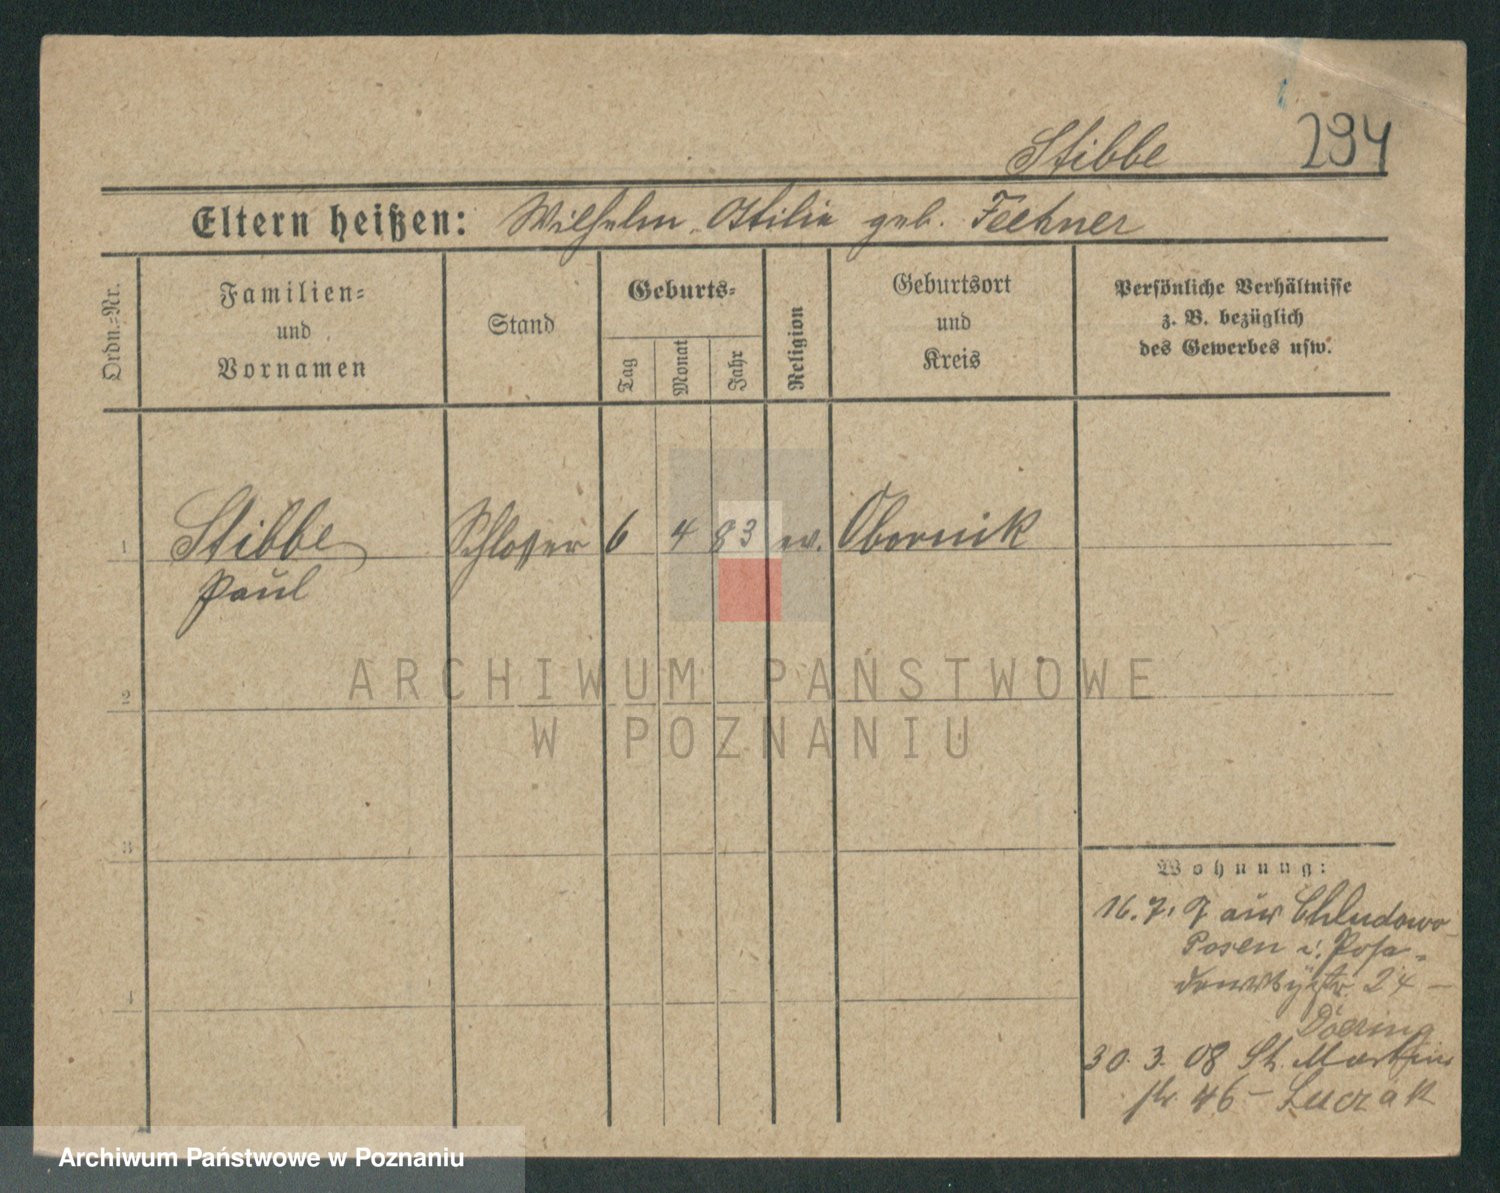 Stibbe 294
Eltern heißen: Wilhelm, Ottilie geb. Feehner
Ordn.=Nr.
Familien=
und
Vornamen
Stand
Geburts=
Tag
Monat
Jahr
Religion
Geburtsort
und
Kreis
Persönliche Verhältnisse
z. B. bezüglich
des Gewerbes usw.
1 Stibbe Schlosser 6 4 83 ev. Obornik
Paul
2
3
4
Wohnung:
16. 7. 7 aus Chludowo
Posen
24 –
Döering
30. 3. 08 St. Martin
str 46 – Luczak
ARCHIWUM PAŃSTWOWE
W POZNANIU
Archiwum Państwowe w Poznaniu